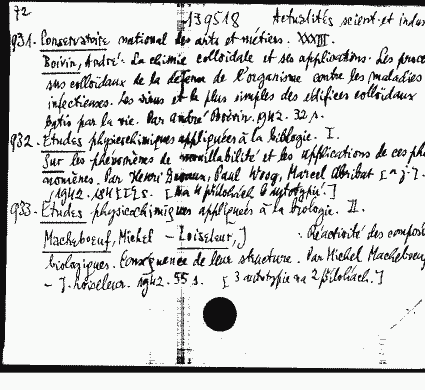 72 139518 Actualités scient. et indus
931. Conservatoire national des arts et métiers. XXXIII.
Boivin, André. La chimie colloidale et ses applications. Les proces
sus colloidaux de la défense de l'organisme contre les maladies
infectieuses. Les virus et la plus simples des édifices colloidaux
batis par la vie. Par André Boivin. 1942. 32 s.
932. Études physicochimiques appliquées à la biologie. I.
Sur les phénomènes de mouillabilité et les applications de ces phé
nomènes. Par Henri Devaux, Paul Woog, Marcel Abribat
1942. 184
933. Études physicochimiques appliquées à la biologie. II.
Macheboeuf, Michel - Loiseleur, J : Réactivité des composés
biologiques. Conséquence de leur structure. Par Michel Macheboeuf
- J. Loiseleur. 1942. 55 s.